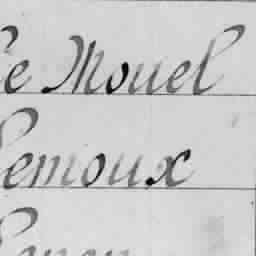 Le Mouel
Lemoux